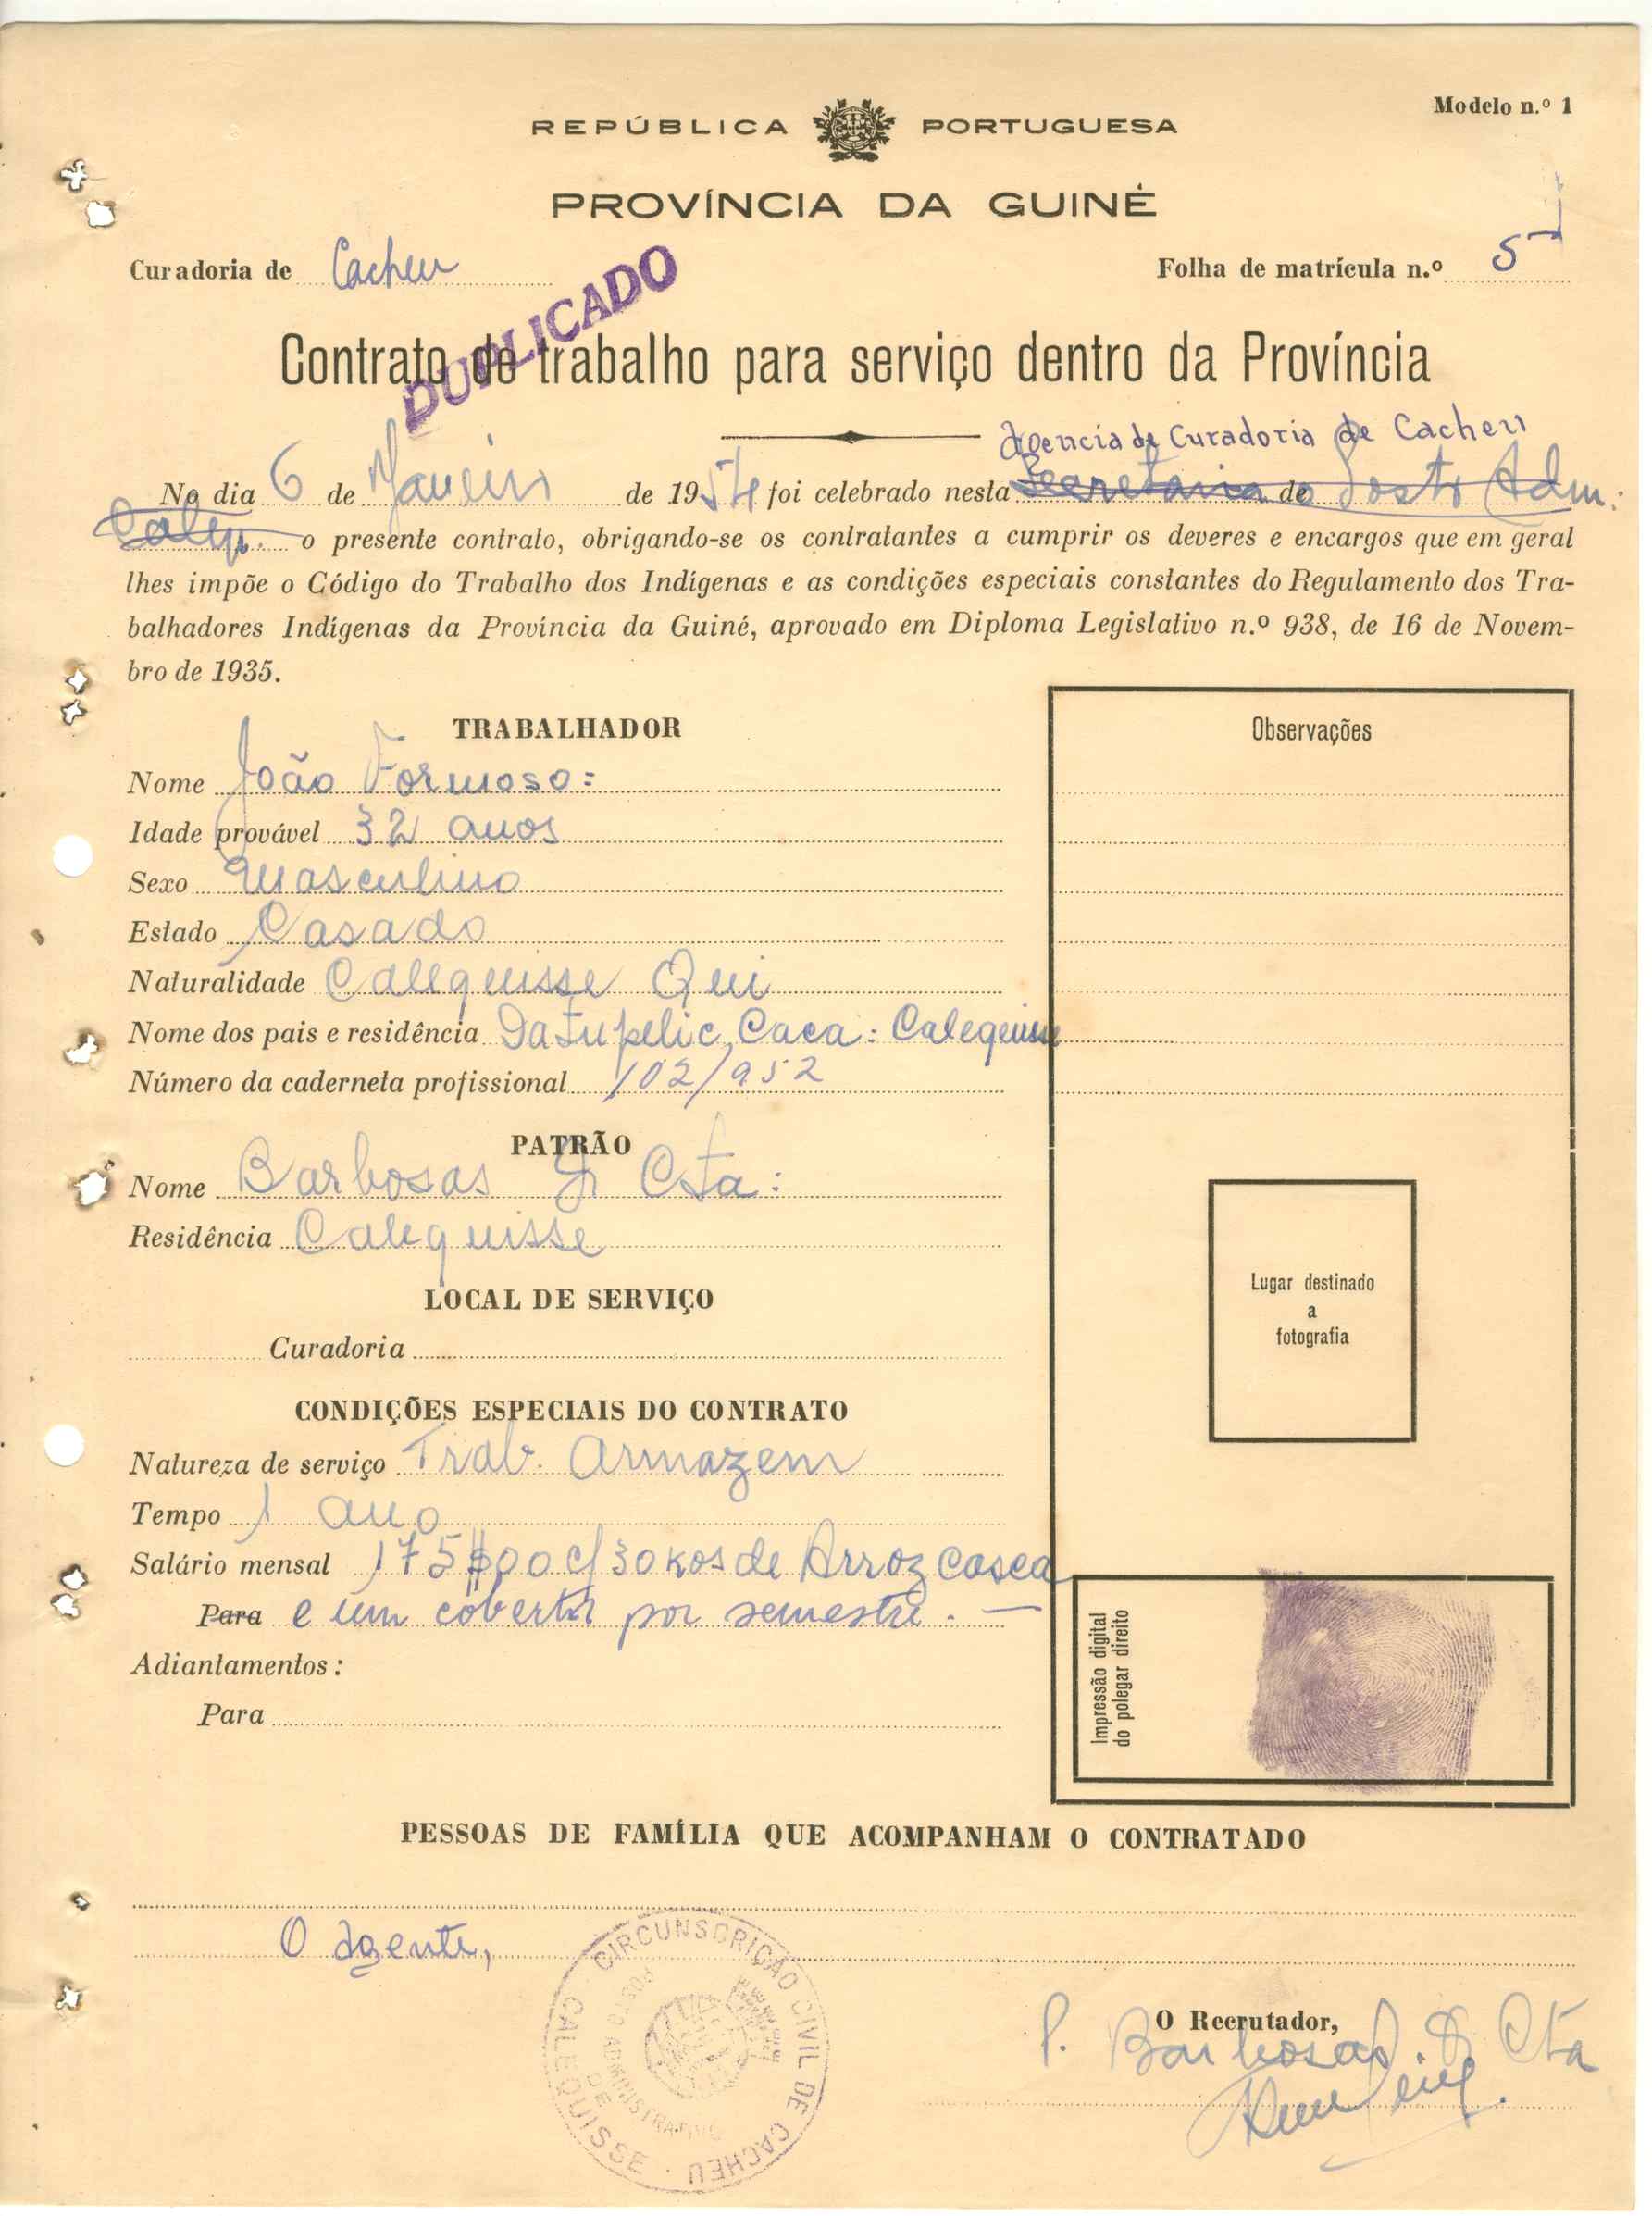 Modelo n.º 1
REPÚBLICA PORTUGUESA
PROVÍNCIA DA GUINÉ
Curadoria de Cacheu
Folha de matrícula n.º 5
DUPLICADO
Contrato de trabalho para serviço dentro da Província
Agencia da Curadoria de Cacheu
No dia 6 de Janeiro de 1954 foi celebrado nesta Secretaria do Posto Adm.
Caleq. o presente contrato, obrigando-se os contratantes a cumprir os deveres e encargos que em geral
lhes impõe o Código do Trabalho dos Indígenas e as condições especiais constantes do Regulamento dos Tra-
balhadores Indígenas da Província da Guiné, aprovado em Diploma Legislativo n.º 938, de 16 de Novem-
bro de 1935.
TRABALHADOR
Nome João Formoso:
Idade provável 32 anos
Sexo Masculino
Estado Casado
Naturalidade Calequisse Qui
Nome dos pais e residência Caca: Calequisse
Número da caderneta profissional 102/952
PATRÃO
Nome Barbosas & Cta:
Residência Calequisse
LOCAL DE SERVIÇO
Curadoria
CONDIÇÕES ESPECIAIS DO CONTRATO
Natureza de serviço Trab. Armazem
Tempo 1 ano
Salário mensal 175$00 c/ 30 kos de Arroz casca
Para e um coberta por semestre. —
Adiantamentos:
Para
Observações
Lugar destinado
a
fotografia
Impressão digital
do polegar direito
PESSOAS DE FAMÍLIA QUE ACOMPANHAM O CONTRATADO
O Agente,
CIRCUNSCRIÇÃO CIVIL DE CACHEU · CALEQUISSE
POSTO ADMINISTRATIVO DE
O Recrutador,
P. Barbosas & Cta